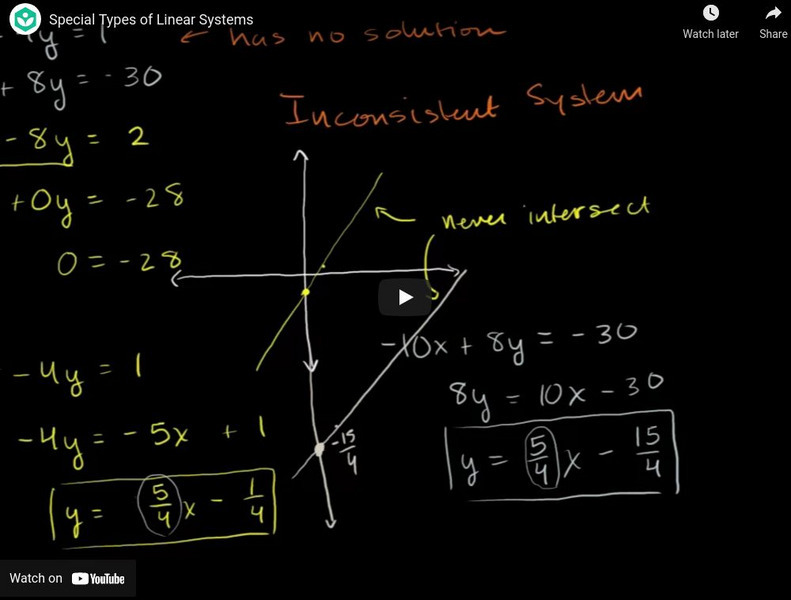 Special Types of Linear Systems
Watch later
Share
4y = 1 ← has no solution
+ 8y = -30
Inconsistent System
- 8y = 2
+0y = -28
never intersect
0 = -28
-10x + 8y = -30
- 4y = 1
8y = 10x - 30
-4y = -5x + 1
-15/4
y = 5/4 x - 15/4
y = 5/4 x - 1/4
Watch on YouTube